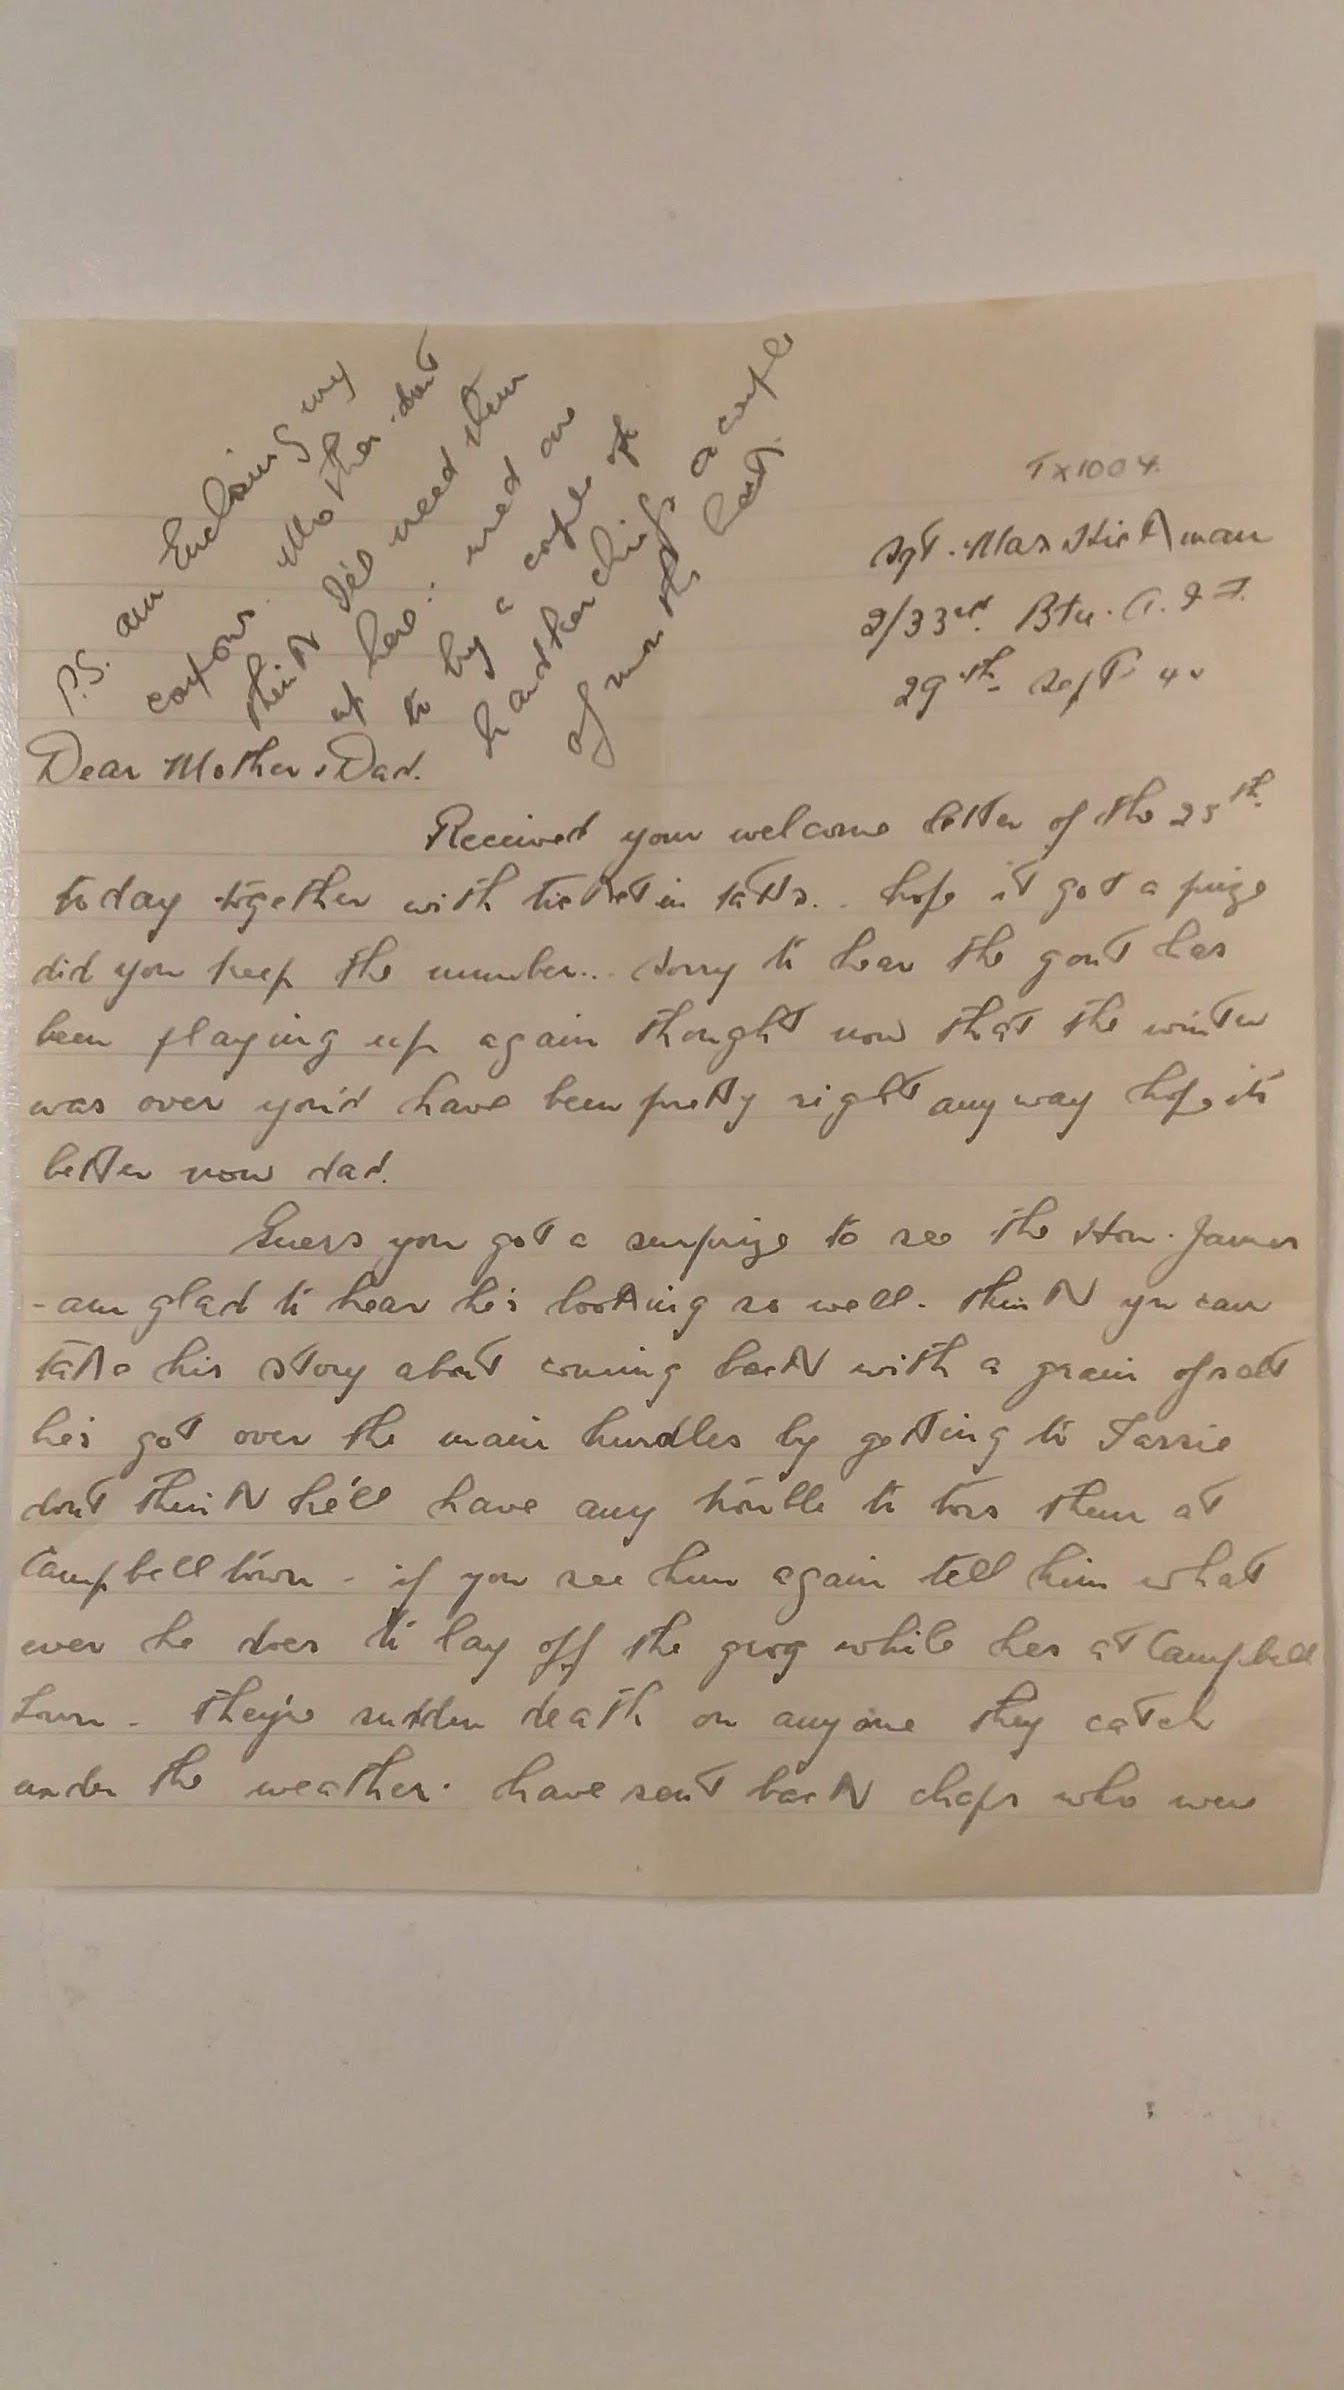 P.S. am Enclosing my
coupons. Mother. dont
think I'll need them
up here. used one
to by a couple of
handkerchiefs a couple
of months back.
TX1004.
Sgt. Max Hickman
2/33rd. Btn. A.I.F.
29th. Sept 42
Dear Mother & Dad.
Received your welcome letter of the 25th.
today together with ticket in tatts.. hope it got a prize
did you keep the number... sorry to hear the gout has
been playing up again thought now that the winter
was over you'd have been pretty right anyway hope its
better now dad.
Guess you got a surprize to see the Hon. James
- am glad to hear he's looking so well. think you can
take his story about coming back with a grain of salt
he's got over the main hurdles by getting to Tassie
dont think he'll have any trouble to toss them at
Campbelltown - if you see him again tell him what
ever he does to lay off the grog while hes at Campbell
Town - they're sudden death on anyone they catch
under the weather. have sent back chaps who were